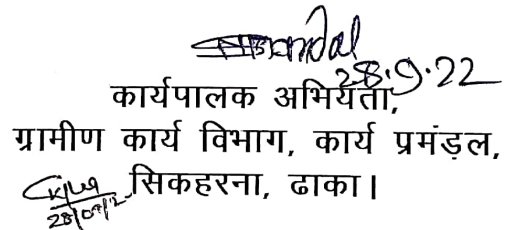 28.9.22
कार्यपालक अभियंता,
ग्रामीण कार्य विभाग, कार्य प्रमंड़ल,
सिकहरना, ढाका।